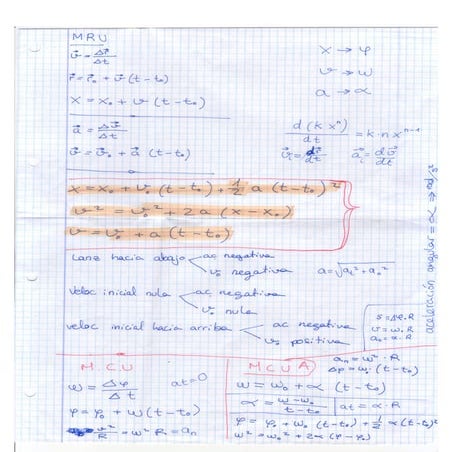 MRU
v⃗ = Δr⃗ / Δt
r⃗ = r⃗₀ + v⃗ (t - t₀)
X = X₀ + v (t - t₀)
a⃗ = Δv⃗ / Δt
v⃗ = v⃗₀ + a⃗ (t - t₀)
X → φ
v → ω
a → α
d (k xⁿ) / dt = k·n xⁿ⁻¹
v⃗ᵢ = dr⃗ / dt a⃗ᵢ = dv⃗ / dt
X = X₀ + v₀ (t - t₀) + 1/2 a (t - t₀)²
v² = v₀² + 2a (x - x₀)
v = v₀ + a (t - t₀)
aceleración angular = α ⇒ rad/s²
Lanz hacia abajo ac negativa
v₀ negativa
a = √(aₜ² + aₙ²)
Veloc inicial nula ac negativa
v₀ nula
veloc inicial hacia arriba ac negativa
v₀ positiva
s = Δφ. R
v = ω. R
a₀ = α. R
M C U
ω = Δφ / Δt at = 0
φ = φ₀ + ω (t - t₀)
v² / R = ω² R = aₙ
M C U A
aₙ = ω² · R
Δφ = ω. (t - t₀)
ω = ω₀ + α (t - t₀)
α = ω - ω₀ / t - t₀ at = α · R
φ = φ₀ + ω₀ (t - t₀) + 1/2 α (t - t₀)²
ω² = ω₀² + 2α (φ - φ₀)